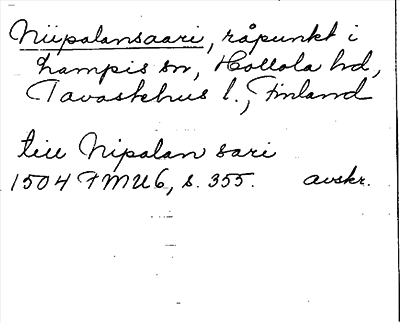 Niipalansaari, råpunkt i
Lampis sn, Hollola hd,
Tavastehus l., Finland
till Nipalan sari
1504 FMU6, s. 355. avskr.